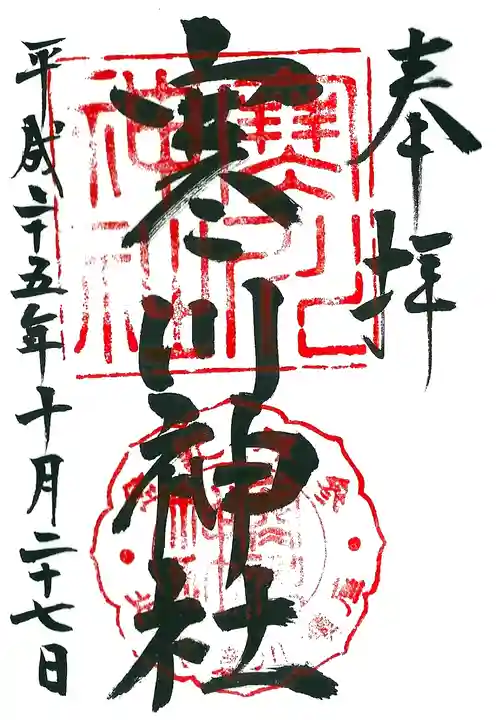 奉拝
寒川神社
平成二十五年十月二十七日
寒川神社